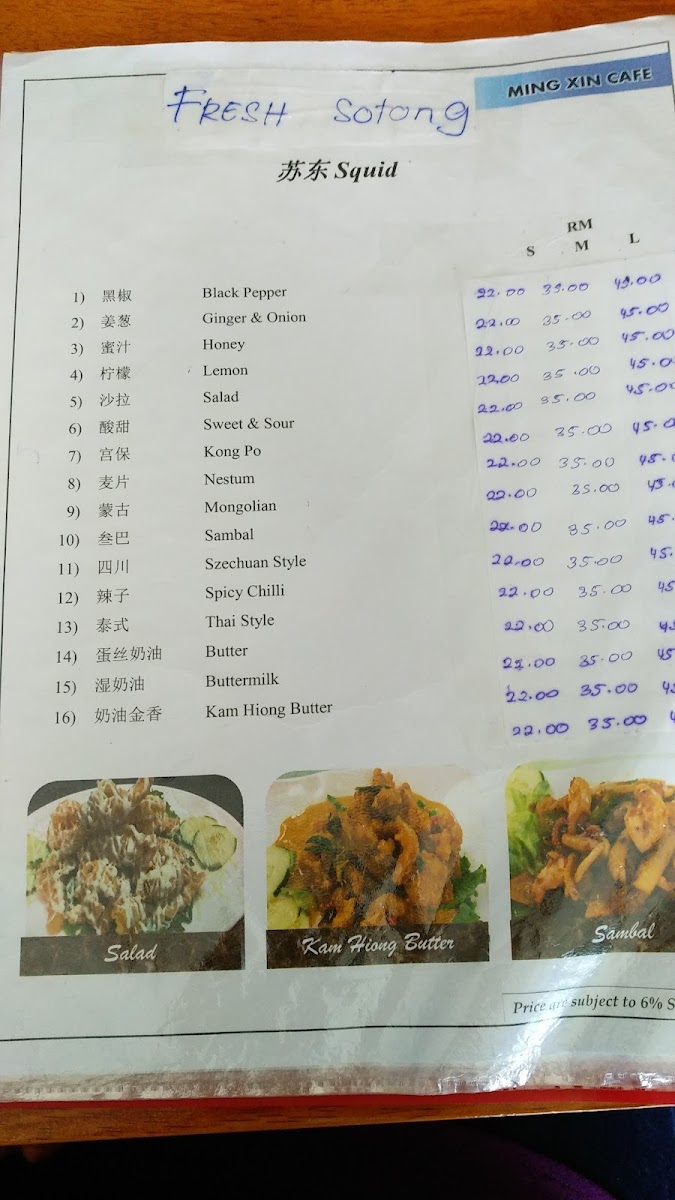 MING XIN CAFE
FRESH Sotong
苏东 Squid
RM
S M L
1) 黑椒 Black Pepper 22.00 35.00 45.00
2) 姜葱 Ginger & Onion 22.00 35.00 45.00
3) 蜜汁 Honey 22.00 35.00 45.00
4) 柠檬 Lemon 2200 35.00 45.0
5) 沙拉 Salad 22.00 35.00 45.00
6) 酸甜 Sweet & Sour 22.00 35.00 45.0
7) 宫保 Kong Po 22.00 35.00 45.
8) 麦片 Nestum 22.00 35.00 45.
9) 蒙古 Mongolian 22.00 35.00 45.
10) 叁巴 Sambal 22.00 35.00 45.
11) 四川 Szechuan Style 22.00 35.00 45
12) 辣子 Spicy Chilli 22.00 35.00 45
13) 泰式 Thai Style 22.00 35.00 45
14) 蛋丝奶油 Butter 22.00 35.00 45
15) 湿奶油 Buttermilk 22.00 35.00 4
16) 奶油金香 Kam Hiong Butter
Salad
Kam Hiong Butter
Sambal
Price are subject to 6% S